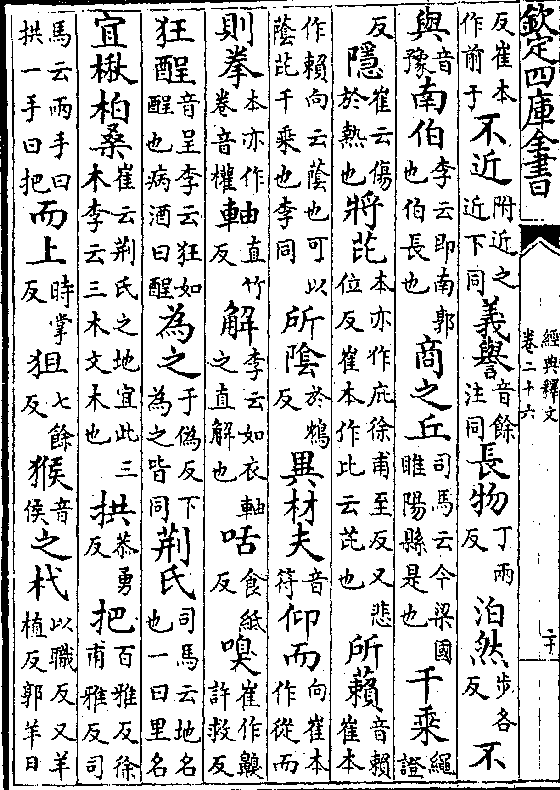 欽定四庫全書
經典釋文
卷二十六
十
反崔本作前于不近附近之近下同義譽音餘注同長物丁兩反泊然步各反不
與音豫南伯李云即南郭也伯長也商之丘司馬云今梁國睢陽縣是也千乘繩證
反隱崔云傷於熱也將芘本亦作庇徐甫至反又悲位反崔本作比云芘也所藾音賴崔本
作賴向云蔭也可以蔭芘千乘也李同所陰於鴆反異材夫音符仰而向崔本作從而
則拳本亦作卷音權軸直竹反解李云如衣軸之直解也咶食紙反嗅崔作齅許救反
狂酲音呈李云狂如酲也病酒曰酲為之于偽反下為之皆同荆氏司馬云地名也一曰里名
宜楸柏桑崔云荆氏之地宜此三木李云三木文木也拱恭勇反把百雅反徐甫雅反司
馬云兩手曰拱一手曰把而上時掌反狙七餘反猴音侯之杙以職反又羊植反郭羊日